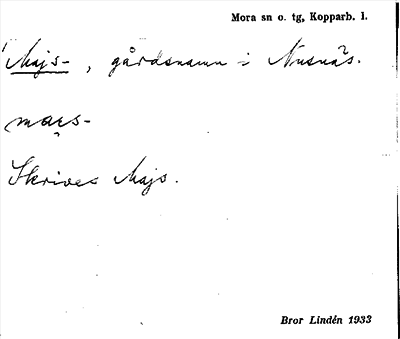 Mora sn o. tg, Kopparb. l.
Majs-, gårdsnamn i Nusnäs.
Skrives Majs.
Bror Lindén 1933